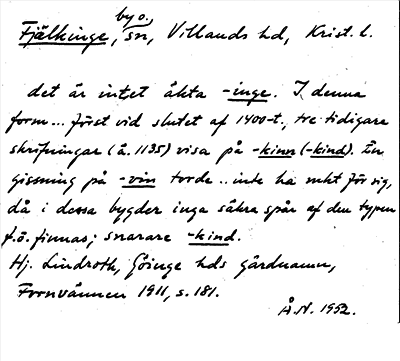 by o.
Fjälkinge, sn, Villands hd, Krist. l.
det är intet äkta -inge. I denna
form... först vid slutet af 1400-t., tre tidigare
skrifningar (ä. 1135) visa på -kinn (-kind). En
gissning på -vin torde .. inte ha mkt för sig,
då i dessa bygder inga säkra spår af den typen
f.ö. finnas; snarare -kind.
Hj. Lindroth, Göinge hds gårdnamn,
Fornvännen 1911, s. 181.
Å.N. 1952.